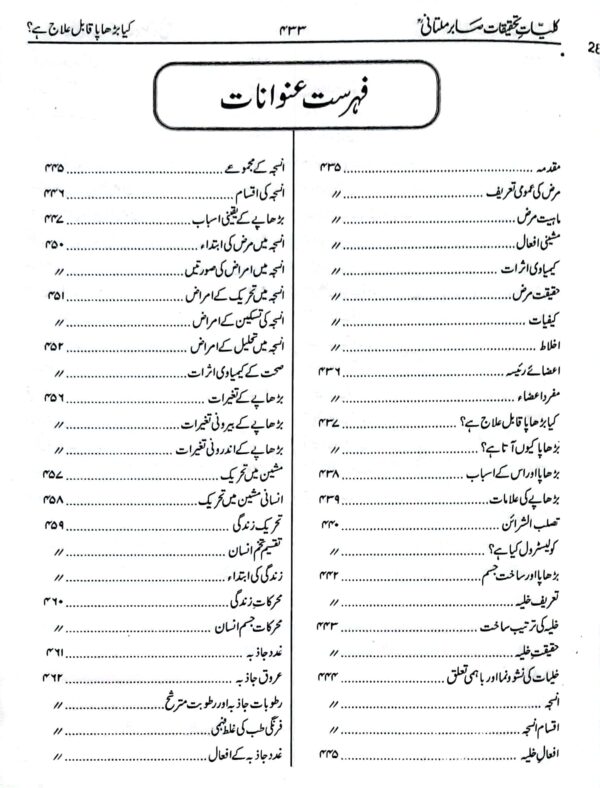 کلیاتِ تحقیقات صابر ملتانیؒ ۴۳۳ کیا بڑھاپا قابل علاج ہے؟
28
فہرست عنوانات
مقدمہ ۴۳۵
مرض کی عمومی تعریف 〃
ماہیت مرض 〃
مشینی افعال 〃
کیمیاوی اثرات 〃
حقیقت مرض 〃
کیفیات 〃
اخلاط 〃
اعضائے رئیسہ ۴۳۶
مفرد اعضاء 〃
کیا بڑھاپا قابل علاج ہے؟ ۴۳۷
بڑھاپا کیوں آتا ہے؟ 〃
بڑھاپا اور اس کے اسباب ۴۳۸
بڑھاپے کی علامات ۴۳۹
تصلب الشرائن ۴۴۰
کولیسٹرول کیا ہے؟ 〃
بڑھاپا اور ساخت جسم ۴۴۲
تعریف خلیہ 〃
خلیہ کی ترتیب ساخت ۴۴۳
حقیقت خلیہ 〃
خلیات کی نشوونما اور باہمی تعلق ۴۴۴
انسجہ 〃
اقسام انسجہ 〃
افعال خلیہ ۴۴۵
انسجہ کے مجموعے ۴۴۵
انسجہ کی اقسام ۴۴۶
بڑھاپے کے یقینی اسباب ۴۴۷
انسجہ میں مرض کی ابتداء ۴۵۰
انسجہ میں امراض کی صورتیں 〃
انسجہ میں تحریک کے امراض ۴۵۱
انسجہ کی تسکین کے امراض 〃
انسجہ میں تحلیل کے امراض ۴۵۲
صحت کے کیمیاوی اثرات 〃
بڑھاپے کے تغیرات ۴۵۶
بڑھاپے کے بیرونی تغیرات 〃
بڑھاپے کے اندرونی تغیرات 〃
مشین میں تحریک ۴۵۷
انسانی مشین میں تحریک ۴۵۸
تحریک زندگی ۴۵۹
تقسیم تخم انسان 〃
زندگی کی ابتداء 〃
محرکات زندگی ۴۶۰
محرکات جسم انسان 〃
غدد جاذبہ ۴۶۱
عروق جاذبہ ۴۶۲
رطوبات جاذبہ اور رطوبت مترشح 〃
فرنگی طب کی غلط فہمی 〃
غدد جاذبہ کے افعال 〃